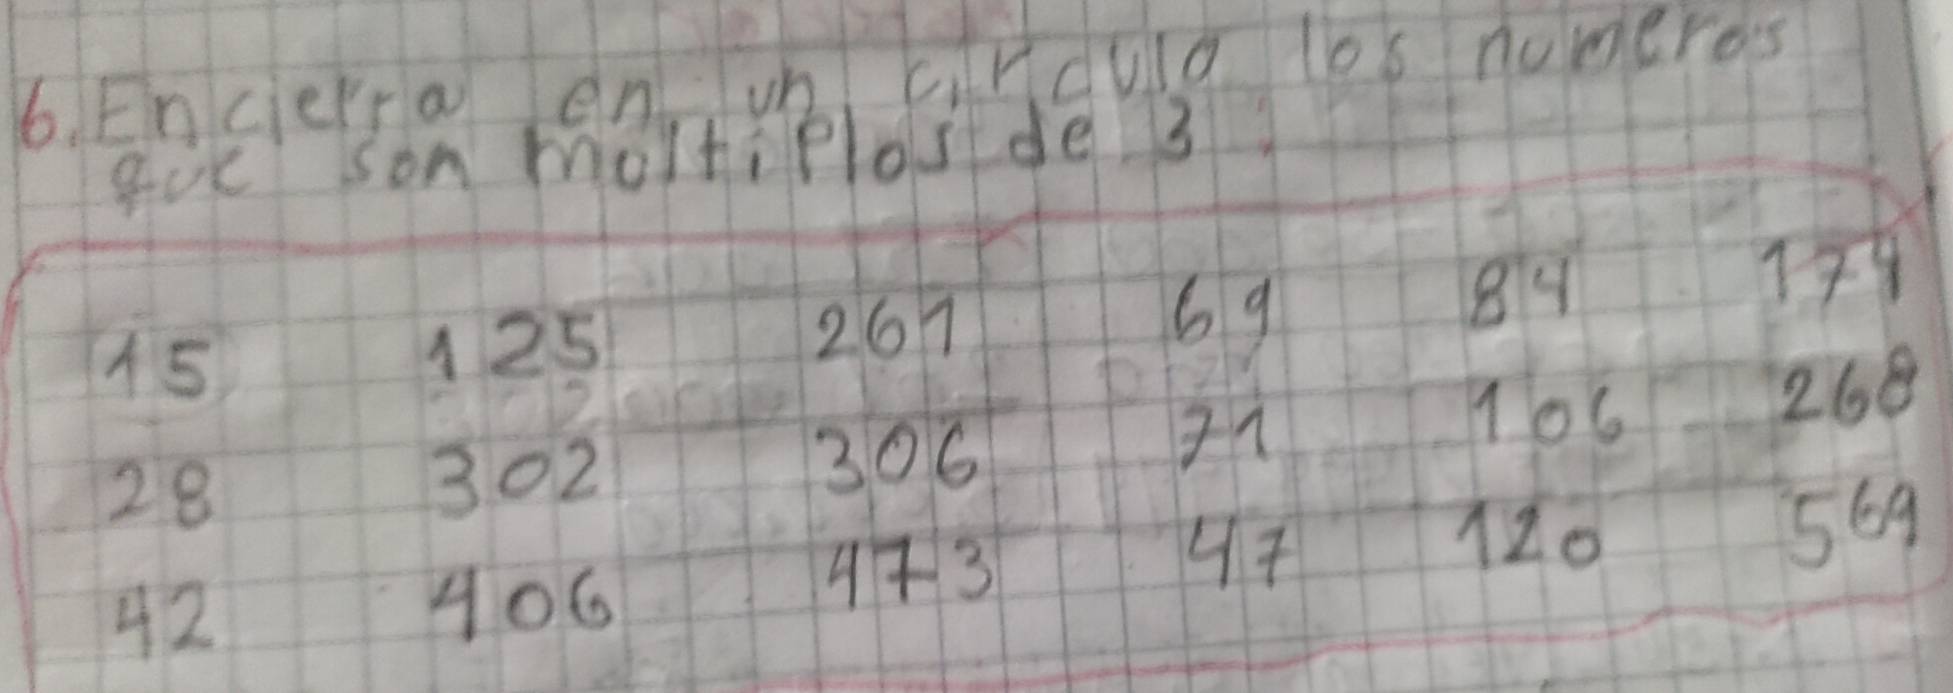 6. Encierra en un circulo los numeros
que son moltiplos de 3:
15 125 261 69 84 174
28 302 306 71 106 268
42 406 473 47 120 569